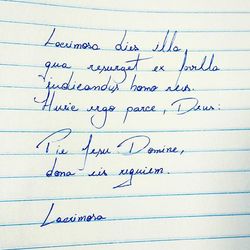 Lacrimosa dies illa
qua resurget ex favilla
judicandus homo reus.
Huic ergo parce, Deus:
Pie Jesu Domine,
dona eis requiem.
Lacrimosa